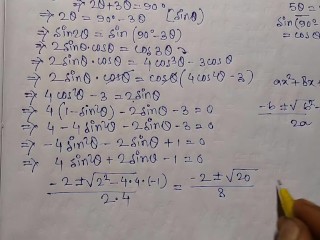 ⇒ 2θ + 3θ = 90°
⇒ 2θ = 90° - 3θ [sinθ]
⇒ sin2θ = sin(90° - 3θ)
⇒ 2sinθ·cosθ = cos3θ
⇒ 2sinθ·cosθ = 4cos³θ - 3cosθ
⇒ 2sinθ·cosθ = cosθ(4cos²θ - 3)
⇒ 4cos²θ - 3 = 2sinθ
⇒ 4(1 - sin²θ) - 2sinθ - 3 = 0
⇒ 4 - 4sin²θ - 2sinθ - 3 = 0
⇒ -4sin²θ - 2sinθ + 1 = 0
⇒ 4sin²θ + 2sinθ - 1 = 0
⇒ (-2 ± √(2² - 4·4·(-1)))/(2·4) = (-2 ± √20)/8
5θ =
sin(90°
= cos
ax² + bx +
(-b ± √(b² -)/2a